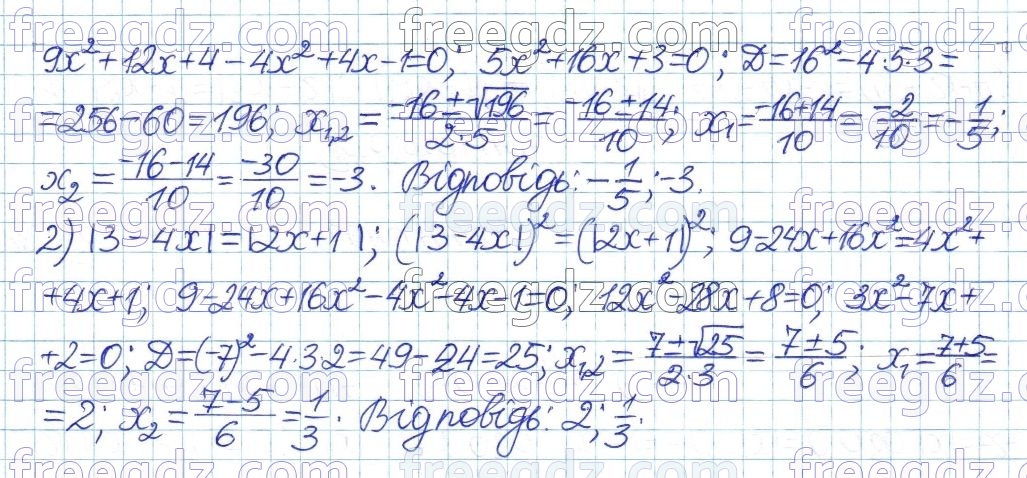 freegdz.com freegdz.com freegdz.com
9x²+12x+4-4x²+4x-1=0; 5x²+16x+3=0; D=16²-4·5·3=
=256-60=196; x₁,₂ = (-16±√196)/(2·5) = (-16±14)/10; x₁ = (-16+14)/10 = -2/10 = -1/5;
x₂ = (-16-14)/10 = -30/10 = -3. Відповідь: -1/5; -3.
2) |3-4x|=|2x+1|; (|3-4x|)²=(|2x+1|)²; 9-24x+16x²=4x²+
+4x+1; 9-24x+16x²-4x²-4x-1=0; 12x²-28x+8=0; 3x²-7x+
+2=0; D=(-7)²-4·3·2=49-24=25; x₁,₂ = (7±√25)/(2·3) = (7±5)/6; x₁ = (7+5)/6 =
=2; x₂ = (7-5)/6 = 1/3. Відповідь: 2; 1/3.
freegdz.com freegdz.com freegdz.com